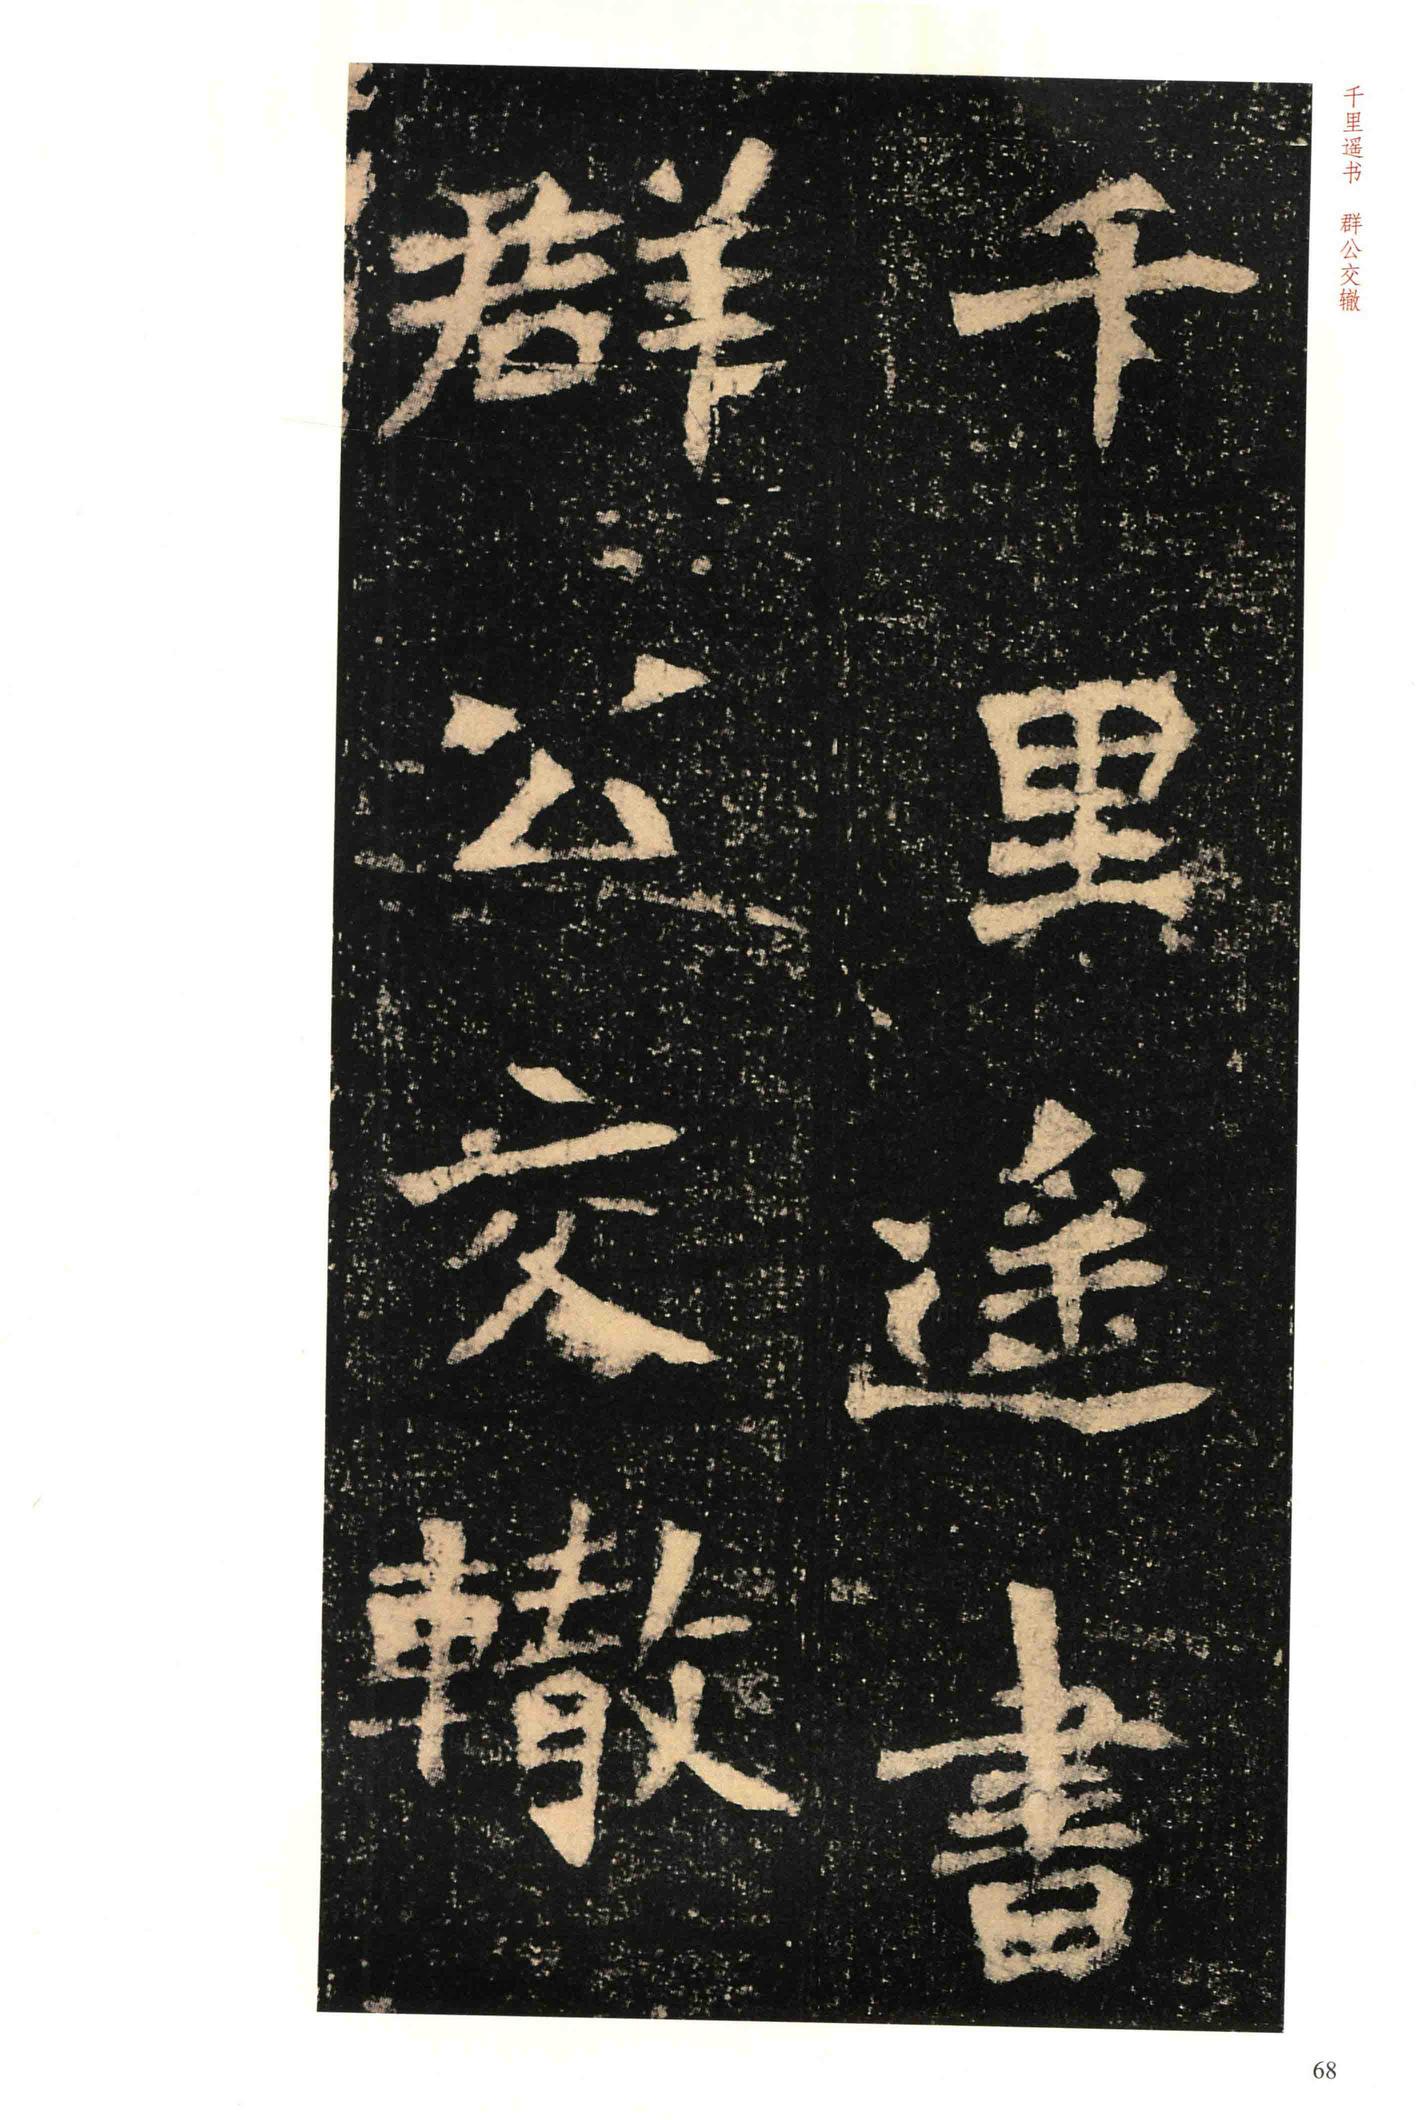 千里遥书 群公交辙
千里遥書
群公交轍
68